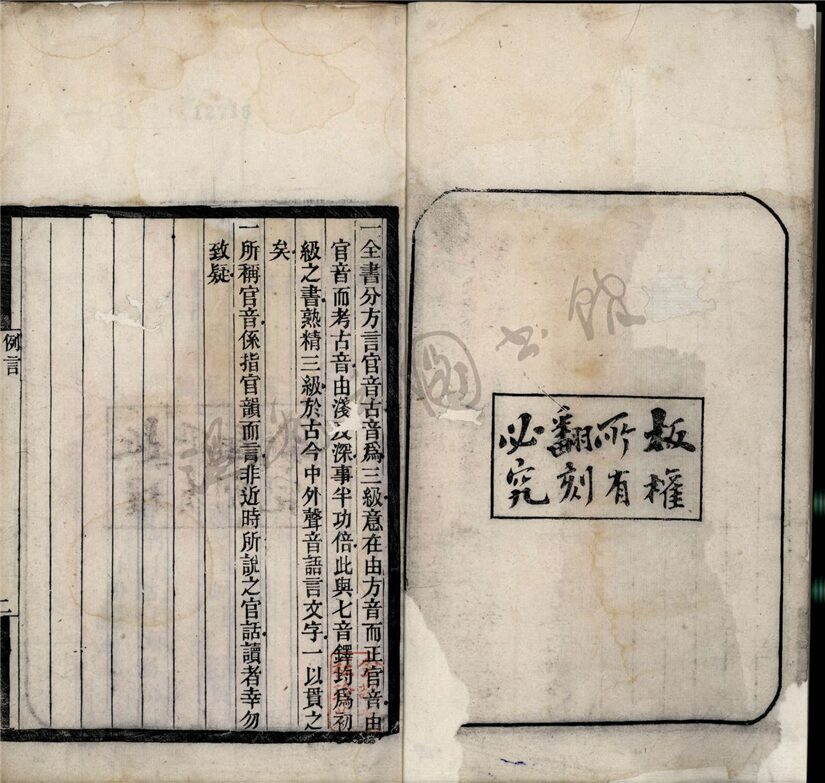 板權
所有
翻刻
必究
一全書分方言官音古音爲三級意在由方音而正官音由
官音而考古音由淺及深事半功倍此與七音鐸均爲初
級之書熟精三級於古今中外聲音語言文字一以貫之
矣
一所稱官音係指官韻而言非近時所說之官話讀者幸勿
致疑
例言
二